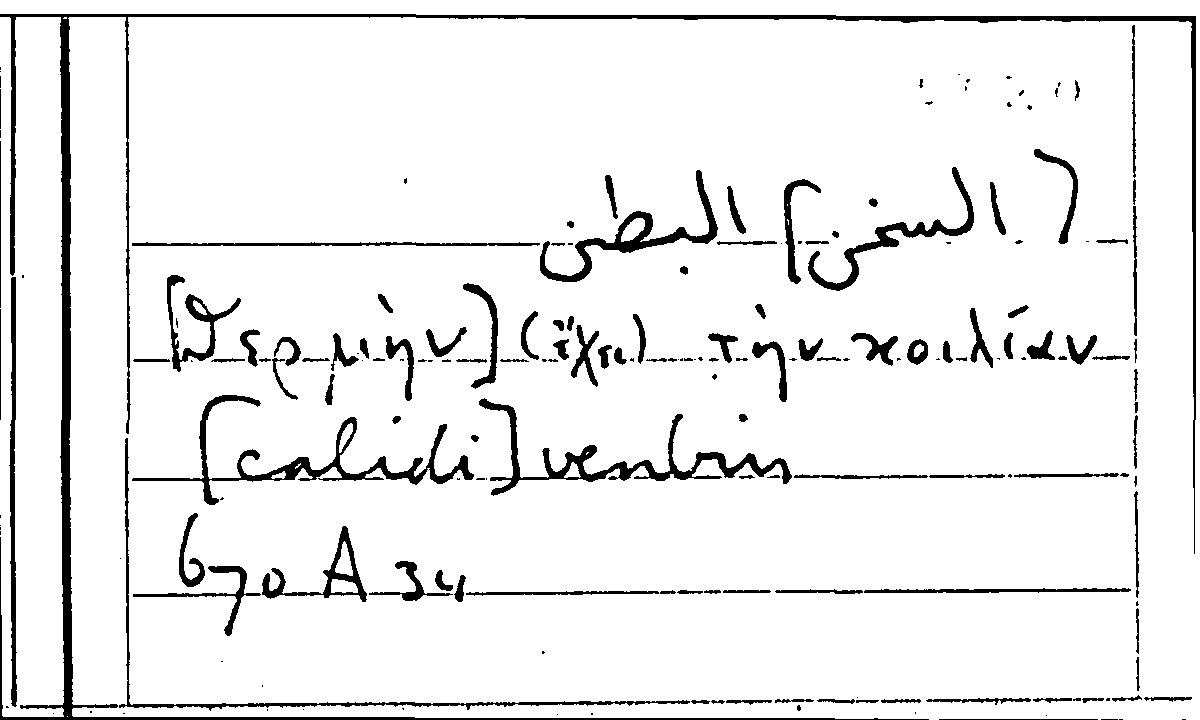 [السخن] البطن
[θερμὴν] (ἔχει) τὴν κοιλίαν
[calidi] ventris
670 A 34